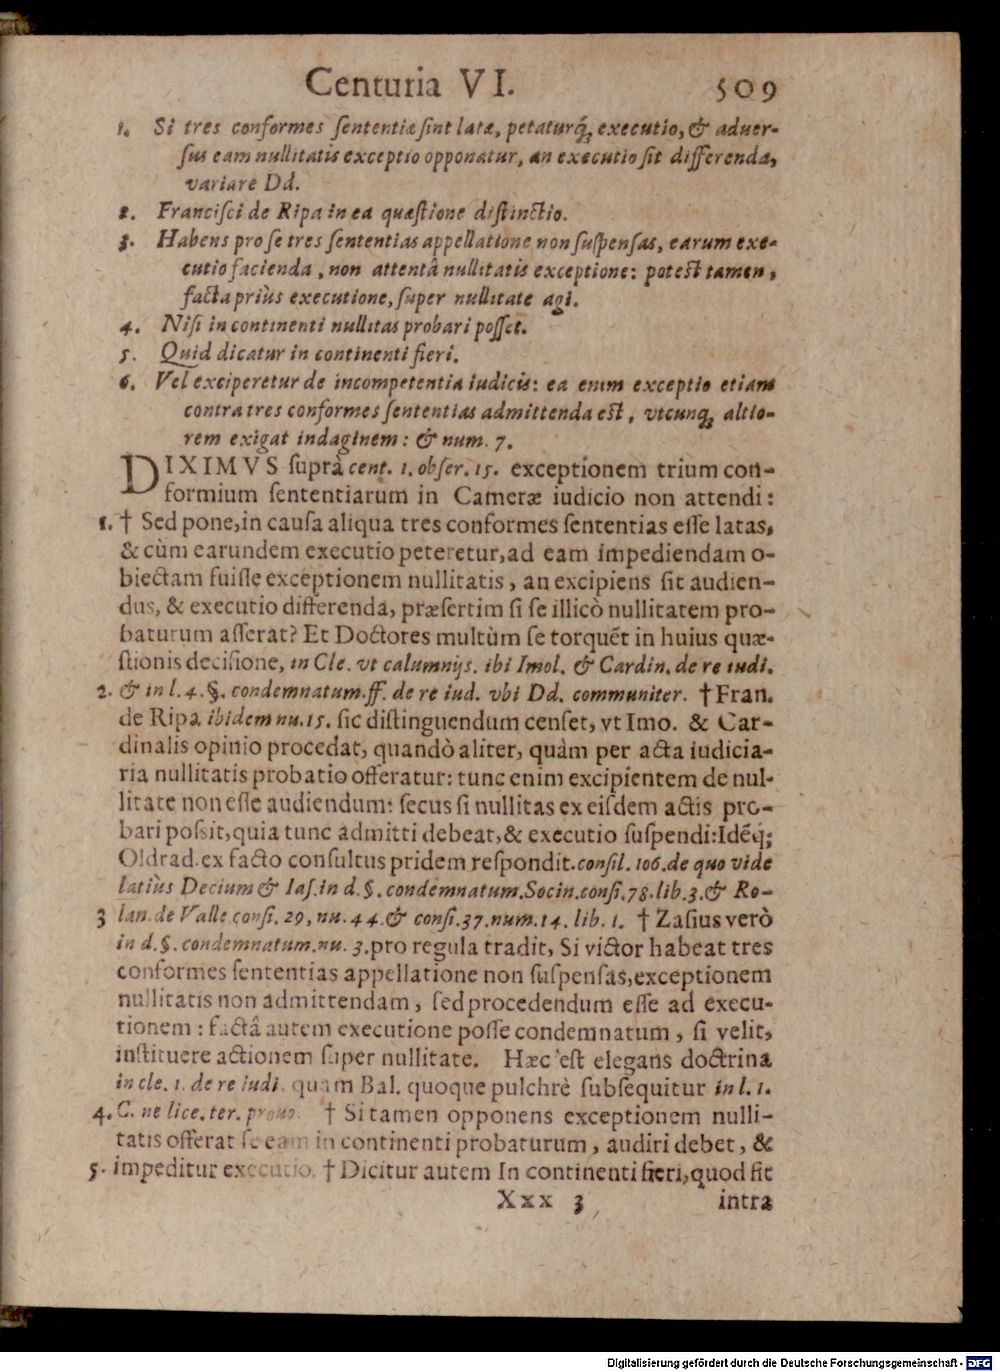 Centuria VI. 509
1. Si tres conformes ſententiæ ſint latæ, petaturq́; executio, & aduer-
ſus eam nullitatis exceptio opponatur, an executio ſit differenda,
variare Dd.
2. Franciſci de Ripa in ea quæſtione diſtinctio.
3. Habens pro ſe tres ſententias appellatione non ſuſpenſas, earum exe-
cutio facienda, non attentâ nullitatis exceptione: poteſt tamen,
facta priùs executione, ſuper nullitate agi.
4. Niſi in continenti nullitas probari poſſet.
5. Quid dicatur in continenti fieri.
6. Vel exciperetur de incompetentia iudicis: ea enim exceptio etiam
contra tres conformes ſententias admittenda eſt, vtcunq; altio-
rem exigat indaginem: & num. 7.
DIXIMVS ſuprà cent. 1. obſer. 15. exceptionem trium con-
formium ſententiarum in Cameræ iudicio non attendi:
1. † Sed pone, in cauſa aliqua tres conformes ſententias eſſe latas,
& cùm earundem executio peteretur, ad eam impediendam o-
biectam fuiſſe exceptionem nullitatis, an excipiens ſit audien-
dus, & executio differenda, præſertim ſi ſe illicò nullitatem pro-
baturum aſſerat? Et Doctores multùm ſe torquẽt in huius quæ-
ſtionis deciſione, in Cle. vt calumnijs. ibi Imol. & Cardin. de re iudi.
2. & in l. 4. §. condemnatum. ff. de re iud. vbi Dd. communiter. † Fran.
de Ripa ibidem nu. 15. ſic diſtinguendum cenſet, vt Imo. & Car-
dinalis opinio procedat, quandò aliter, quàm per acta iudicia-
ria nullitatis probatio offeratur: tunc enim excipientem de nul-
litate non eſſe audiendum: ſecus ſi nullitas ex eiſdem actis pro-
bari poſsit, quia tunc admitti debeat, & executio ſuſpendi: Idẽq́;
Oldrad. ex facto conſultus pridem reſpondit. conſil. 106. de quo vide
latiùs Decium & Iaſ. in d. §. condemnatum. Socin. conſi. 78. lib. 3. & Ro-
3 lan. de Valle conſi. 29, nu. 44. & conſi. 37. num. 14. lib. 1. † Zaſius verò
in d. §. condemnatum. nu. 3. pro regula tradit, Si victor habeat tres
conformes ſententias appellatione non ſuſpenſas, exceptionem
nullitatis non admittendam, ſed procedendum eſſe ad execu-
tionem: factâ autem executione poſſe condemnatum, ſi velit,
inſtituere actionem ſuper nullitate. Hæc eſt elegans doctrina
in cle. 1. de re iudi. quam Bal. quoque pulchrè ſubſequitur in l. 1.
4. C. ne lice. ter. prouo. † Si tamen opponens exceptionem nulli-
tatis offerat ſe eam in continenti probaturum, audiri debet, &
5. impeditur executio. † Dicitur autem In continenti fieri, quod fit
Xxx 3 intra
Digitalisierung gefördert durch die Deutsche Forschungsgemeinschaft - DFG